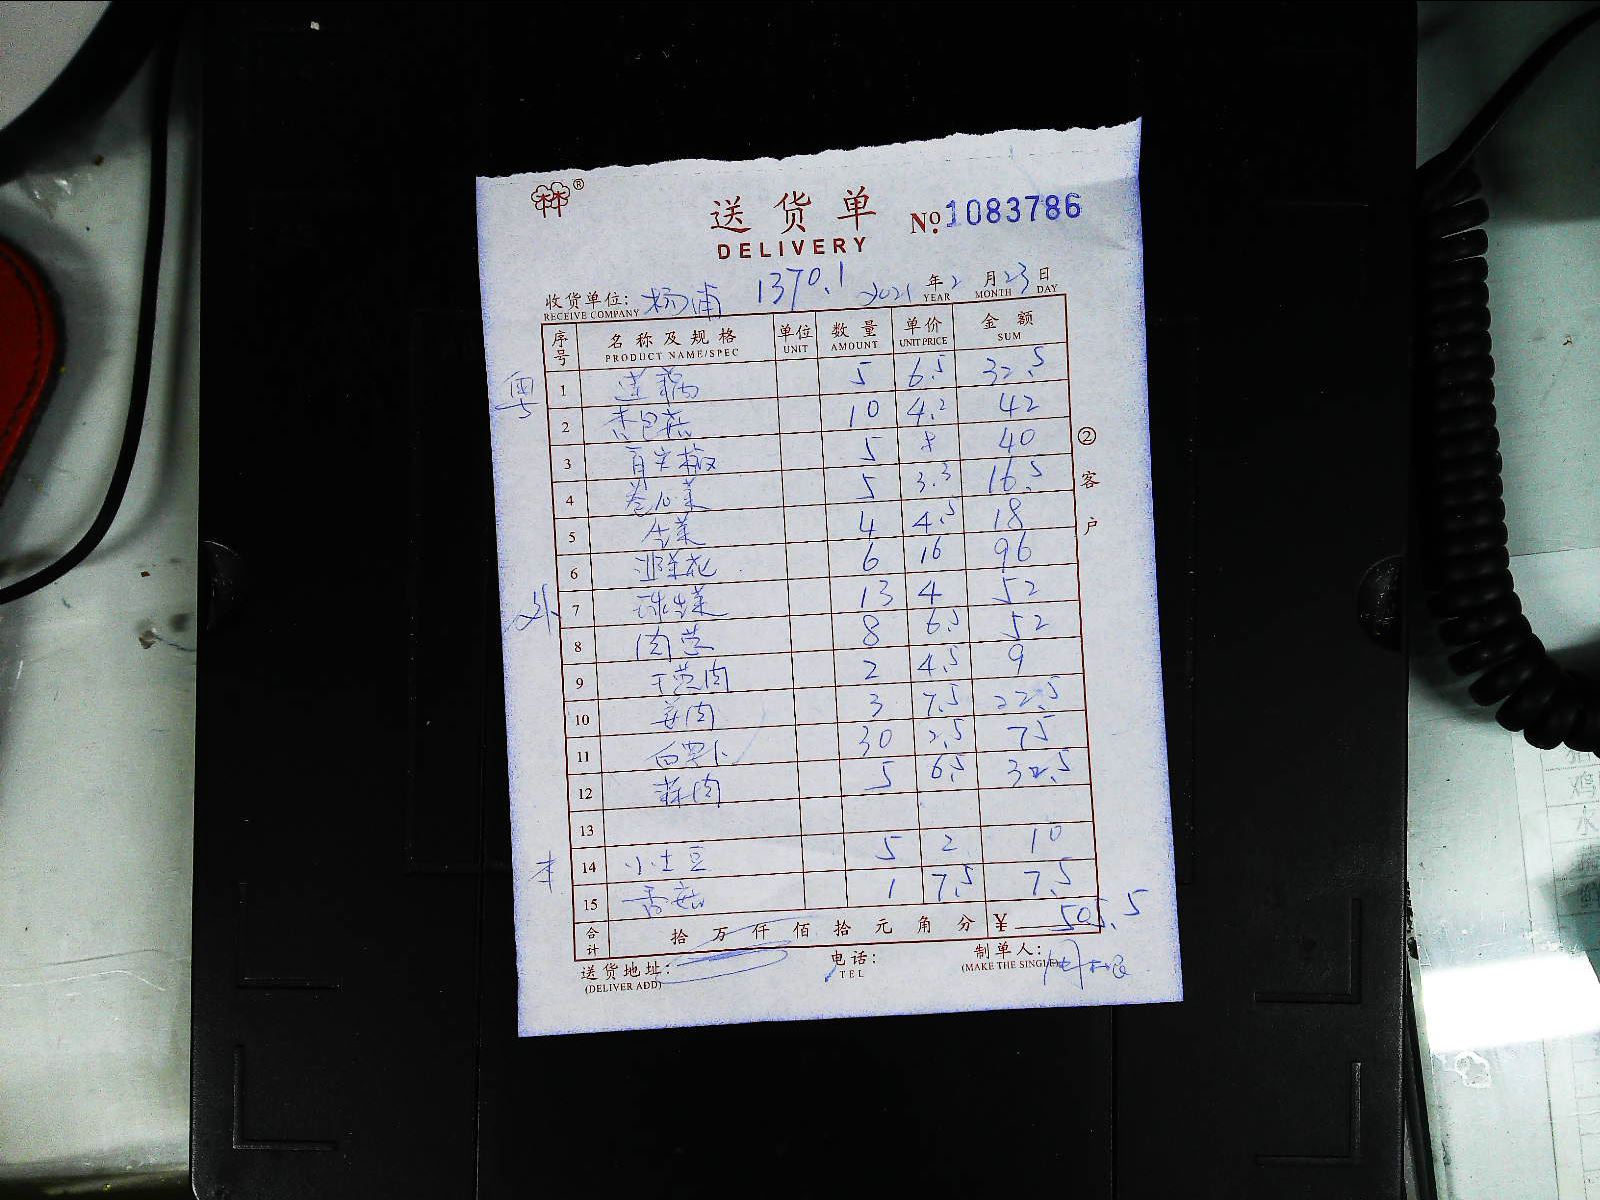 林 ®
送货单 №1083786
DELIVERY
收货单位: 杨浦 1370.1 2021 年 2 月 23 日
RECEIVE COMPANY YEAR MONTH DAY
序号 名称及规格 单位 数量 单价 金额
PRODUCT NAME/SPEC UNIT AMOUNT UNIT PRICE SUM
粤 1 莲藕 5 6.5 32.5
2 杏包菇 10 4.2 42
3 5 8 40
4 卷心菜 5 3.3 16.5
5 生菜 4 4.5 18
6 韭菜花 6 16 96
外 7 球生菜 13 4 52
8 8 6.5 52
9 2 4.5 9
10 姜肉 3 7.5 22.5
11 白萝卜 30 2.5 75
12 蒜肉 5 6.5 32.5
13
本 14 小土豆 5 2 10
15 香菇 1 7.5 7.5
合计 拾 万 仟 佰 拾 元 角 分 ¥ 505.5
送货地址: 电话: 制单人:
(DELIVER ADD) TEL (MAKE THE SINGLE)
② 客户
鸡
水